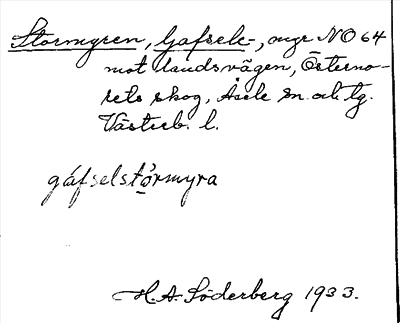 Stormyren, Gafsele-, ängr NO 64
mot landsvägen, Österno-
rets skog, Åsele sn. och tg.
Västerb. l.
gáfselstórmyra
H.A. Söderberg 1933.